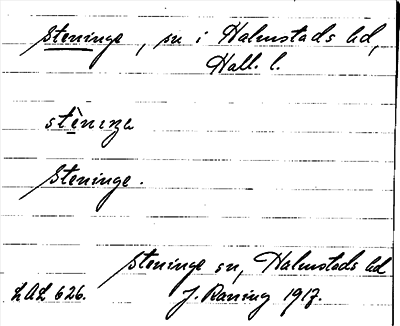 Steninge, sn i Halmstads hd,
Hall. l.
stèniŋə
Steninge.
Steninge sn, Halmstads hd
LAL 626. J. Raning 1917.